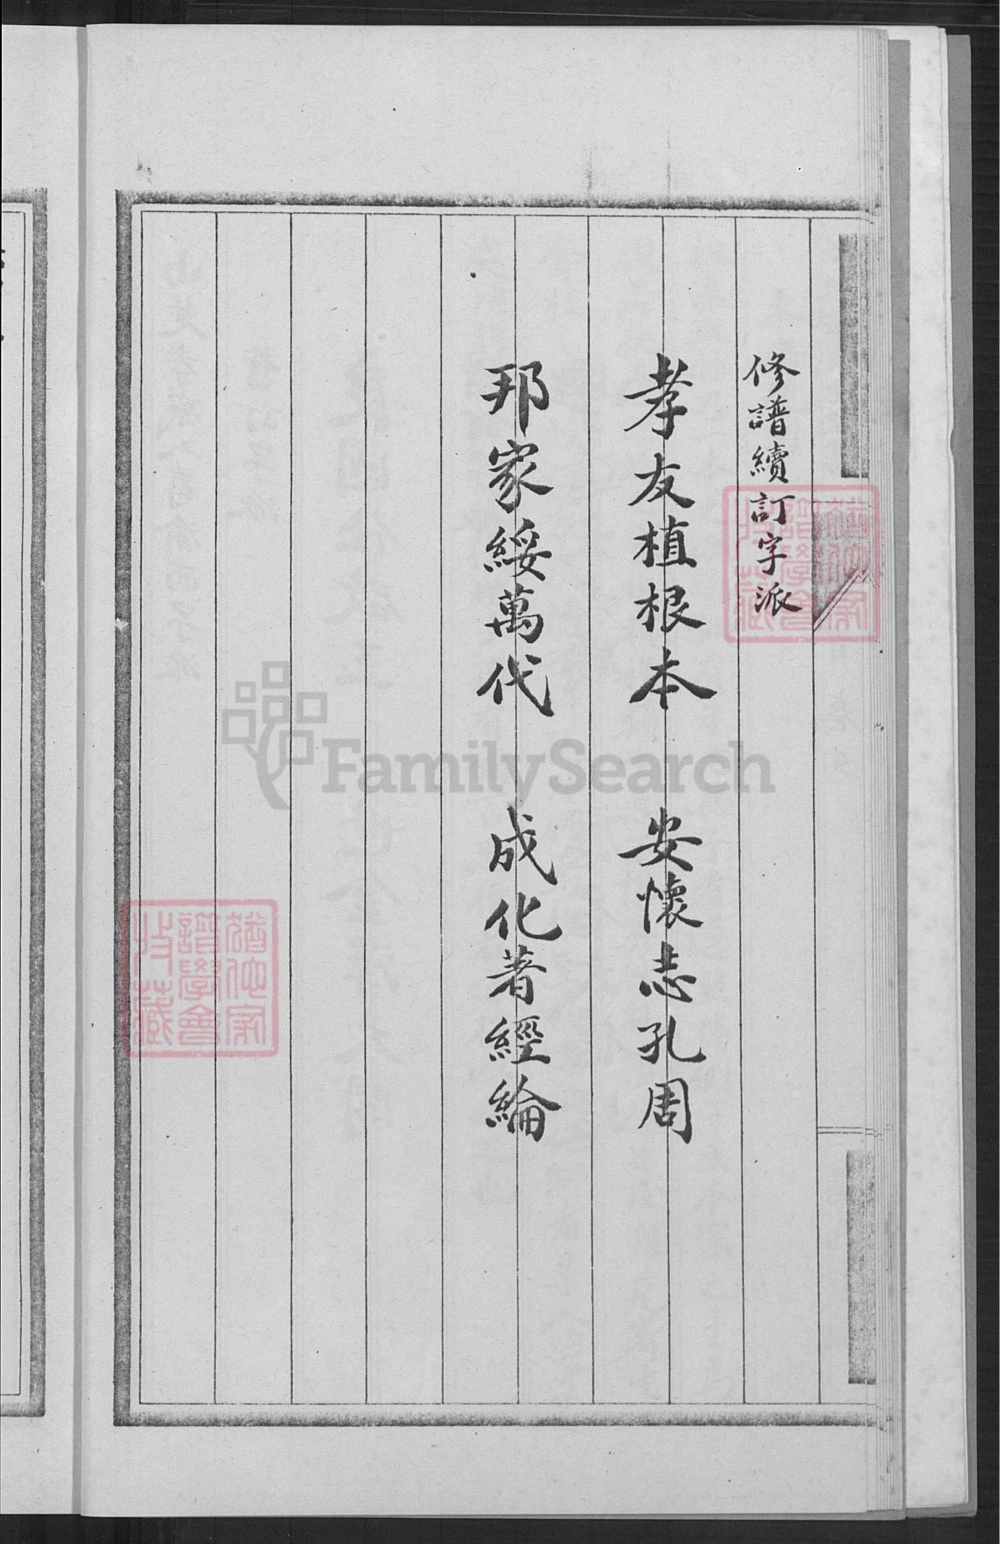 修譜續訂字派
孝友植根本 安懷志孔周
邦家綏萬代 成化著經綸
FamilySearch
譜學會
持藏
譜學會